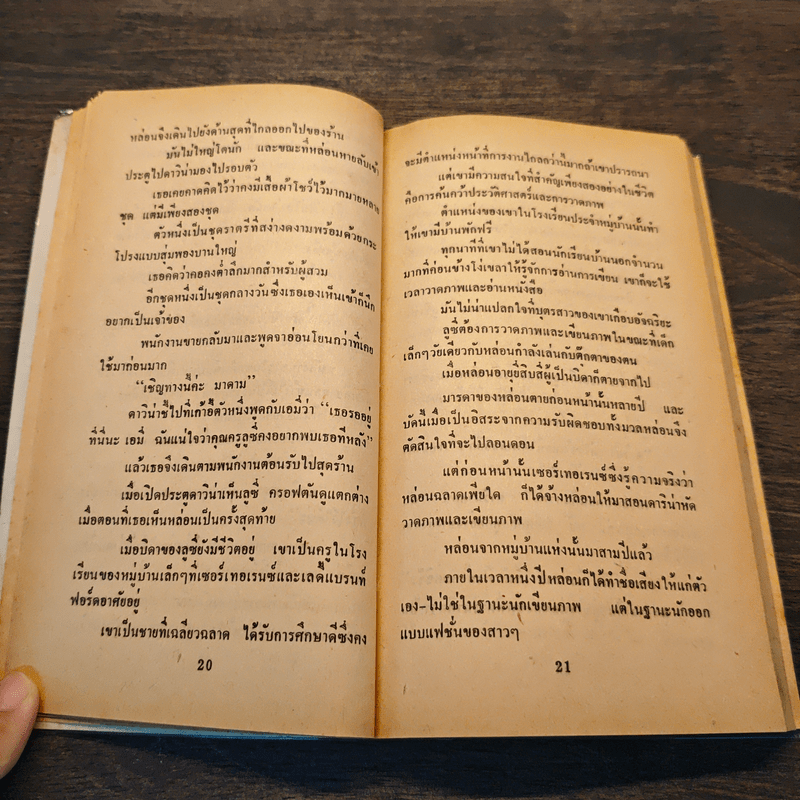 หล่อนจึงเดินไปยังด้านสุดที่ไกลออกไปของร้าน
มันไม่ใหญ่โตนัก และขณะที่หล่อนหายลับเข้า
ประตูไปดาวิน่ามองไปรอบตัว
เธอเคยคาดคิดไว้ว่าคงมีเสื้อผ้าโชว์ไว้มากมายหลาย
ชุด แต่มีเพียงสองชุด
ตัวหนึ่งเป็นชุดราตรีที่สง่างดงามพร้อมด้วยกระ
โปรงแบบสุ่มพองบานใหญ่
เธอคิดว่าคอคงต่ำลึกมากสำหรับผู้สวม
อีกชุดหนึ่งเป็นชุดกลางวันซึ่งเธอเองเห็นเข้าก็นึก
อยากเป็นเจ้าของ
พนักงานขายกลับมาและพูดจาอ่อนโยนกว่าที่เคย
ใช้มาก่อนมาก
“เชิญทางนี้ค่ะ มาดาม”
ดาวิน่าชี้ไปที่เก้าอี้ตัวหนึ่งพูดกับเอมี่ว่า “เธอรออยู่
ที่นี่นะ เอมี่ ฉันแน่ใจว่าคุณครูลูซี่คงอยากพบเธอทีหลัง”
แล้วเธอจึงเดินตามพนักงานต้อนรับไปสุดร้าน
เมื่อเปิดประตูดาวิน่าเห็นลูซี่ ครอฟตันดูแตกต่าง
เมื่อตอนที่เธอเห็นหล่อนเป็นครั้งสุดท้าย
เมื่อบิดาของลูซี่ยังมีชีวิตอยู่ เขาเป็นครูในโรง
เรียนของหมู่บ้านเล็กๆที่เซอร์เทอเรนซ์และเลดี้แบรนท์
ฟอร์ดอาศัยอยู่
เขาเป็นชายที่เฉลียวฉลาด ได้รับการศึกษาดีซึ่งคง
20
จะมีตำแหน่งหน้าที่การงานไกลกว่านี้มากถ้าเขาปรารถนา
แต่เขามีความสนใจที่สำคัญเพียงสองอย่างในชีวิต
คือการค้นคว้าประวัติศาสตร์และการวาดภาพ
ตำแหน่งของเขาในโรงเรียนประจำหมู่บ้านนั้นทำ
ให้เขามีบ้านพักฟรี
ทุกนาทีที่เขาไม่ได้สอนนักเรียนบ้านนอกจำนวน
มากที่ค่อนข้างโง่เขลาให้รู้จักการอ่านการเขียน เขาก็จะใช้
เวลาวาดภาพและอ่านหนังสือ
มันไม่น่าแปลกใจที่บุตรสาวของเขาเกือบอัจฉริยะ
ลูซี่ต้องการวาดภาพและเขียนภาพในขณะที่เด็ก
เล็กๆวัยเดียวกับหล่อนกำลังเล่นกับตุ๊กตาของตน
เมื่อหล่อนอายุยี่สิบสี่ผู้เป็นบิดาก็ตายจากไป
มารดาของหล่อนตายก่อนหน้านั้นหลายปี และ
บัดนี้เมื่อเป็นอิสระจากความรับผิดชอบทั้งมวลหล่อนจึง
ตัดสินใจที่จะไปลอนดอน
แต่ก่อนหน้านั้นเซอร์เทอเรนซ์ซึ่งรู้ความจริงว่า
หล่อนฉลาดเพียใด ก็ได้จ้างหล่อนให้มาสอนดาริน่าหัด
วาดภาพและเขียนภาพ
หล่อนจากหมู่บ้านแห่งนั้นมาสามปีแล้ว
ภายในเวลาหนึ่งปีหล่อนก็ได้ทำชื่อเสียงให้แก่ตัว
เอง-ไม่ใช่ในฐานะนักเขียนภาพ แต่ในฐานะนักออก
แบบแฟชั่นของสาวๆ
21